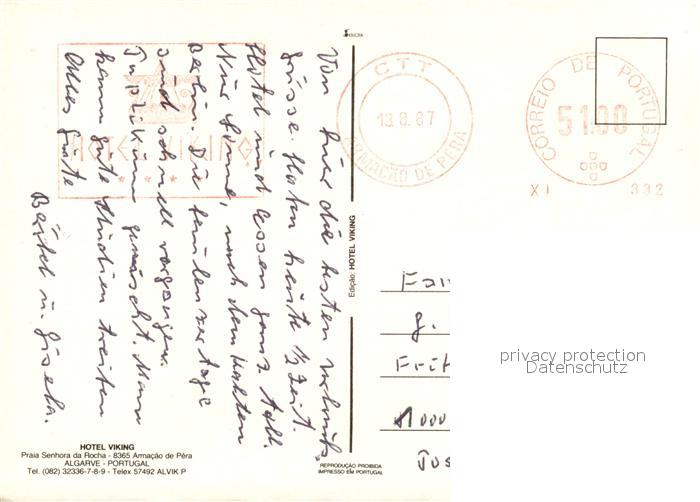 Von hier die besten Urlaubs
Grüsse. Haben heute ½ Zeit.
Hotel und Essen ganz toll.
Nur Sonne, nach dem kalten
Berlin. Die faulenzer tage
sind schnell vergangen.
gemischt. Man
kann gute Studien treiben
Alles Gute
Bärbel u. Gisela.
HOTEL VIKING
CTT
13.8.87
ARMAÇÃO DE PÊRA
CORREIO DE PORTUGAL
51.00
XI 332
Edição: HOTEL VIKING
Fam
G.
1000
privacy protection
Datenschutz
HOTEL VIKING
Praia Senhora da Rocha - 8365 Armação de Pêra
ALGARVE - PORTUGAL
Tel. (082) 32336-7-8-9 - Telex 57492 ALVIK P
REPRODUÇÃO PROIBIDA
IMPRESSO EM PORTUGAL